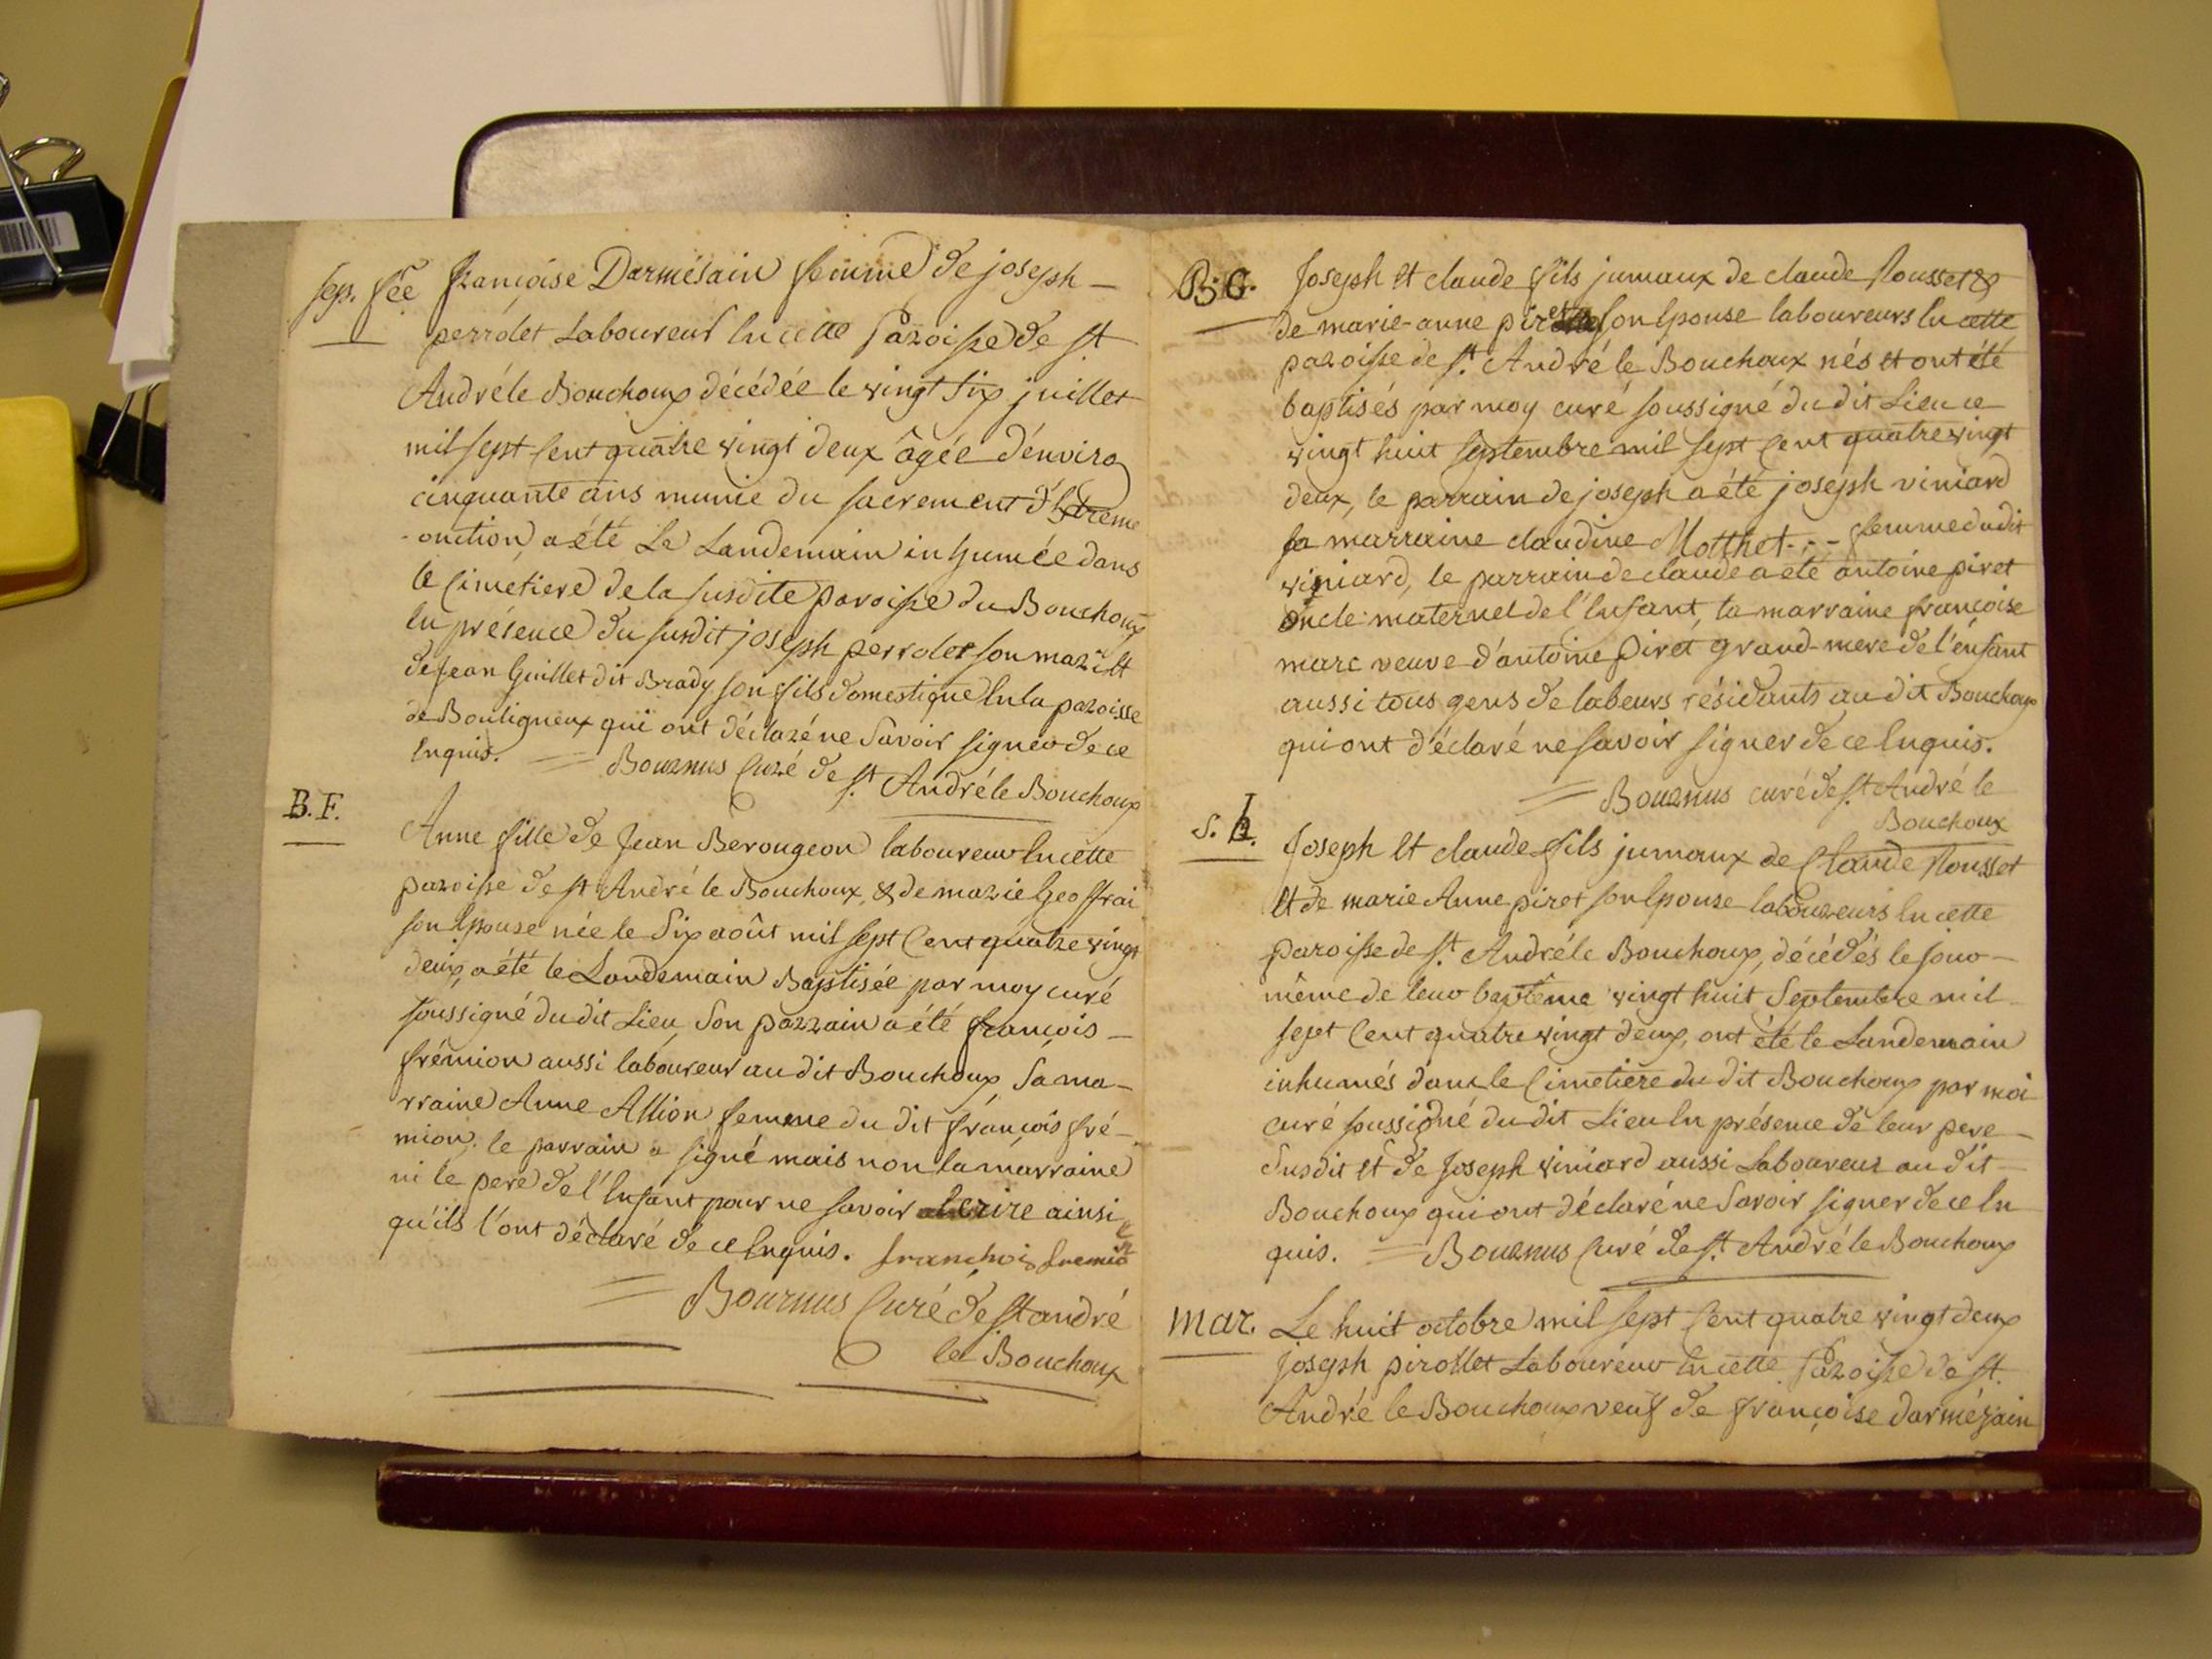 sep. fée françoise Darmésain femme de joseph -
perrolet Laboureur en cette Paroisse de st
André le Bouchoux décédée le vingt six juillet
mil sept cent quatre vingt deux âgée d'enviro
cinquante ans munie du sacrement d'extreme
-onction, a été Le Landemain inhumée dans
le Cimétiere de la susdite paroisse du Bouchoux
en présence du susdit joseph perrolet son mari et
de Jean Guillet dit Brady son fils domestique en la paroisse
de Bouligneux qui ont déclaré ne Savoir signer de ce
enquis. = Bournus Curé de st. André le Bouchoux
B. F.
Anne fille de Jean Berougeon laboureur en cette
paroisse de st André le Bouchoux, & de marie Geoffrai
son epouse née le Six août mil sept Cent quatre vingt
deux, a été le Landemain Baptisée par moy curé
soussigné du dit Lieu, Son parrain a été françois -
frémion aussi laboureur au dit Bouchoux, Sa ma-
rraine Anne Allion femme du dit françois fré-
mion. le parrain a signé mais non la marraine
ni le pere de l'enfant pour ne savoir ecrire ainsi
qu'ils l'ont déclaré de ce enquis. franchois fremion
= Bournus Curé de st andré
le Bouchoux
B. G. Joseph et claude fils jumaux de claude Rousset &
de marie-anne piret son epouse laboureurs en cette
paroisse de st. André le Bouchoux nés et ont été
baptisés par moy curé soussigné du dit Lieu ce
vingt huit septembre mil sept Cent quatre vingt
deux, le parrain de joseph a été joseph viniard
sa marraine claudine Motthet - - - femme du dit
viniard, le parrain de claude a été antoine piret
oncle maternel de l'enfant, la marraine françoise
marc veuve d'antoine Piret grand-mere de l'énfant
aussi tous gens de labeurs résidants au dit Bouchoux
qui ont déclaré ne savoir signer de ce enquis.
= Bournus curé de st. André le
Bouchoux
S. h. Joseph et claude fils jumaux de Claude Rousset
et de marie Anne piret son epouse laboureurs en cette
paroisse de st. André le Bouchoux, décédés le jour -
même de leur baptême vingt huit Septembre mil
sept Cent quatre vingt deux, ont été le Landemain
inhumés dans le Cimetiere du dit Bouchoux par moi
curé soussigné du dit Lieu en présence de leur pere -
Susdit et de Joseph viniard aussi Laboureur au dit -
Bouchoux qui ont déclaré ne Savoir signer de ce en
quis. = Bournus Curé de st. André le Bouchoux
mar. Le huit octobre mil sept Cent quatre vingt deux
joseph pirollet Laboureur en cette Paroisse de st.
André le Bouchoux veuf de françoise darmésain